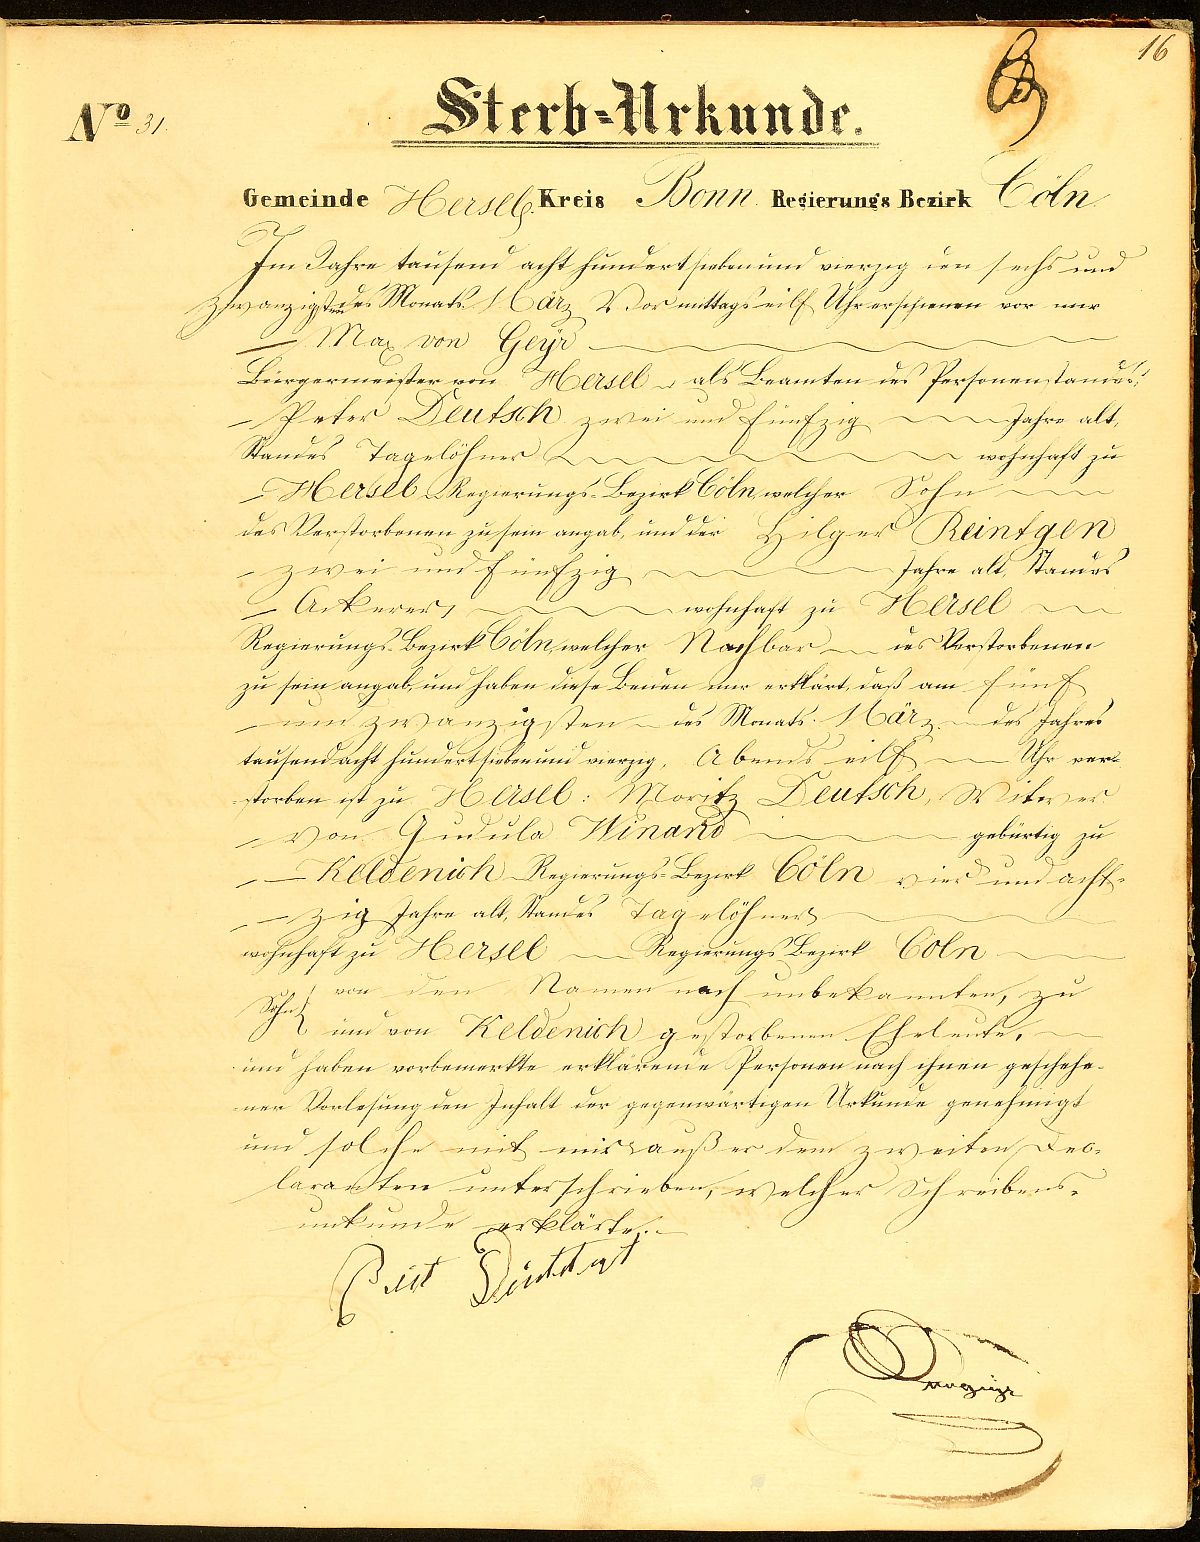 16
No 31.
Sterb=Urkunde.
Gemeinde Hersel. Kreis Bonn. Regierungs Bezirk Cöln.
Im Jahre tausend acht hundert sieben und vierzig den sechs und
zwanzigsten des Monats März Vormittags eilf Uhr erschienen vor mir
Max von Geÿr
Bürgermeister von Hersel als Beamten des Personenstandes,
Peter Deutsch zwei und fünfzig Jahre alt,
Standes Tagelöhner wohnhaft zu
Hersel Regierungs=Bezirk Cöln, welcher Sohn
des Verstorbenen zu sein angab, und der Hilger Reintgen
zwei und fünfzig Jahre alt, Standes
Ackerer, wohnhaft zu Hersel
Regierungs=Bezirk Cöln, welcher Nachbar des Verstorbenen
zu sein angab, und haben diese Beiden mir erklärt, daß am fünf
und zwanzigsten des Monats März des Jahres
tausend acht hundert sieben und vierzig, Abends eilf Uhr ver=
storben ist zu Hersel: Moritz Deutsch, Witwer
von Gudula Winand gebürtig zu
Keldenich Regierungs=Bezirk Cöln vier und acht=
zig Jahre alt, Standes Tagelöhner
wohnhaft zu Hersel Regierungs Bezirk Cöln
Sohn von den Namen nach unbekannten, zu
und von Keldenich gestorbenen Eheleute,
und haben vorbemerkte erklärende Personen nach ihnen geschehe=
ner Vorlesung den Inhalt der gegenwärtigen Urkunde genehmigt
und solche mit mir außer dem zweiten Dec=
laranten unterschrieben, welcher Schreibens=
unkunde erklärte.